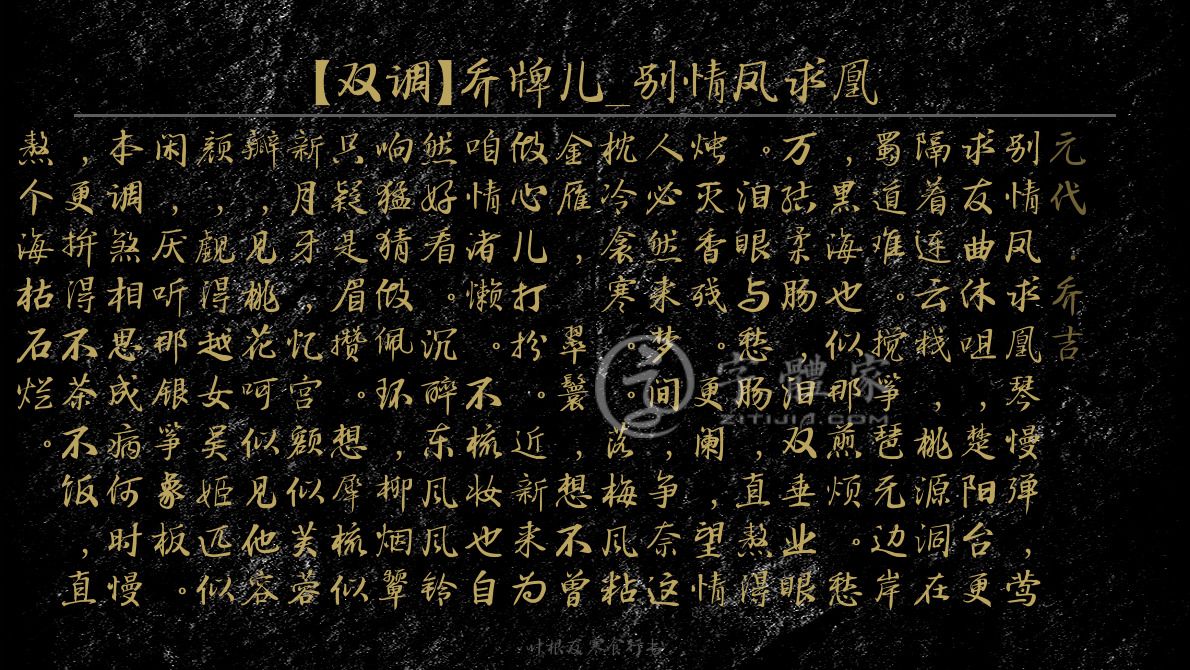 【双调】乔牌儿_别情凤求凰
元代：乔吉
别情凤求凰琴慢弹，莺
求友曲休咀，楚阳台更
隔着连云栈，桃源洞在
蜀道难。搅筝琶无边岸
，黑海也似那煎烦。愁
万结柔肠，泪双垂业眼
。泪眼与愁肠，直熬得
烛灭香残。更阑，望情
人必然来梦间，争奈这
枕冷衾寒。。落梅风粘
金雁， 翠鬟，想不曾
做心儿打扮。近新来为
咱情渚懒。不梳妆也自
然好看。沉醉东风风铃
响猛猜做佩环，柳烟翠
只疑是眉攒。想犀梳似
新月牙，忆宫额似芙蓉
瓣，见桃花呵似见他容
颜，觑得越女吴姬匹似
闲，厌听那银筝象板。
本调煞相思成病何时慢
，更拚得不茶不饭，直
熬个海枯石烂。
字体家
ZITIJIA.COM
叶根友寒食行书